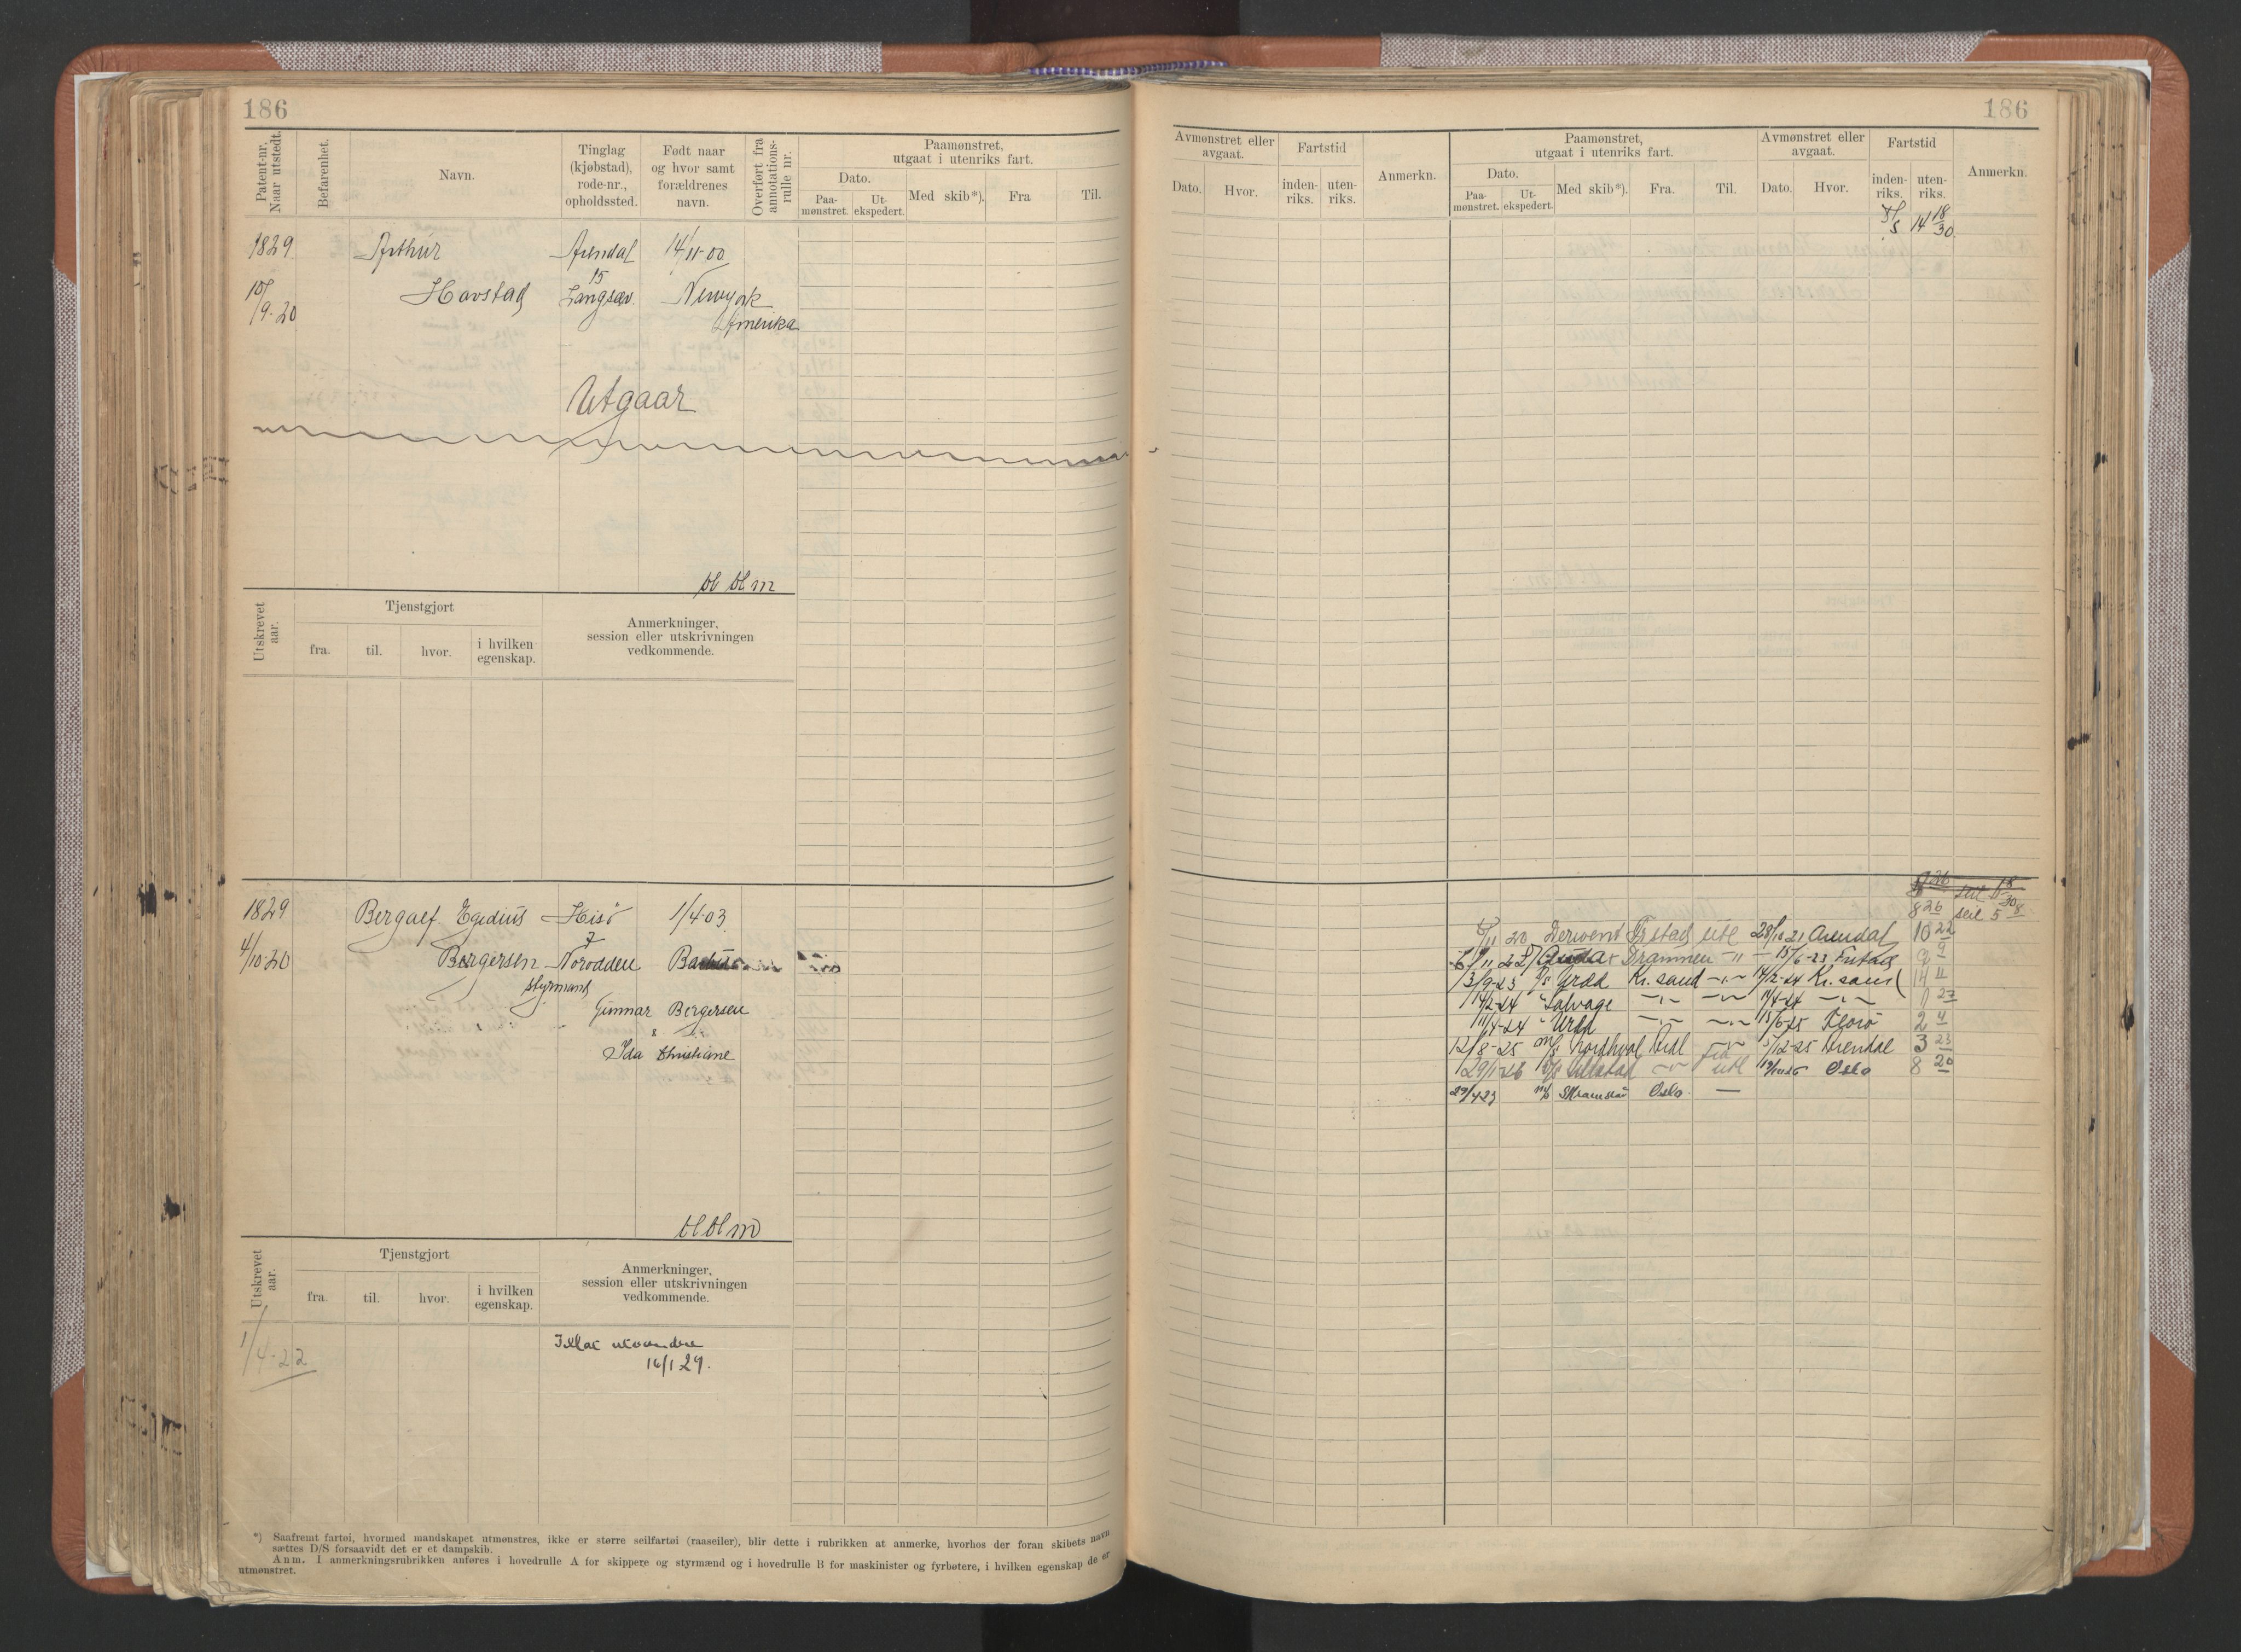 186
Patent-nr. Naar utstedt.
Befarenhet.
Navn.
Tinglag (kjøbstad), rode-nr., opholdssted.
Født naar og hvor samt forældrenes navn.
Overført fra annotations-rulle nr.
Paamønstret, utgaat i utenriks fart.
Dato.
Paa-mønstret.
Ut-ekspedert.
Med skib*).
Fra
Til.
1829 Arthur Arendal 14/11-00
15
10/9-20 Havstad Langsæv Newyork
Amerika
Utgaar
bl bl m
Utskrevet aar.
Tjenstgjort
fra.
til.
hvor.
i hvilken egenskap.
Anmerkninger, session eller utskrivningen vedkommende.
1829 Bergalf Egidius Hisö 1/4-03
7
4/10-20 Bergersen Norodden
styrmand
Gunnar Bergersen
Ida Christiane
bl bl m
Utskrevet aar.
Tjenstgjort
fra.
til.
hvor.
i hvilken egenskap.
Anmerkninger, session eller utskrivningen vedkommende.
1/4-22
16/1 29.
*) Saafremt fartøi, hvormed mandskapet utmønstres, ikke er større seilfartøi (raaseiler), blir dette i rubrikken at anmerke, hvorhos der foran skibets navn
sættes D/S forsaavidt det er et dampskib.
Anm. I anmerkningsrubrikken anføres i hovedrulle A for skippere og styrmænd og i hovedrulle B for maskinister og fyrbøtere, i hvilken egenskap de er
utmønstret.
186
Avmønstret eller avgaat.
Dato.
Hvor.
Fartstid
inden-riks.
uten-riks.
Anmerkn.
Paamønstret, utgaat i utenriks fart.
Dato.
Paa-mønstret.
Ut-ekspedert.
Med skib*).
Fra.
Til.
Avmønstret eller avgaat.
Dato.
Hvor.
Fartstid
inden-riks.
uten-riks.
Anmerkn.
14 18/30
8 26 seil 5 8
11 20 Derwent Frstad utl 28/10 21 Arendal 10 22
11 22 Drammen - " - 15/6-23 Frstad 9 9
13/9-23 D/s Urdd Kr.sand 14/2-24 Kr.sand 11
14/2-24 " Salvage 11/4-24 1 27
11/4-24 " Urdd 15/6-25 Florö 2 4
12/8-25 m/s Nordhval 5/12-25 Arendal 3 23
29/1-26 utl Oslo 8 20
Oslo